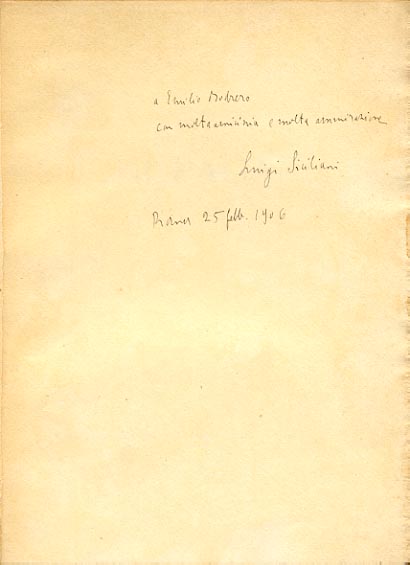 a Emilio Bodrero
con molta amicizia e molta ammirazione
Luigi Siciliani
Roma 25 febb. 1906